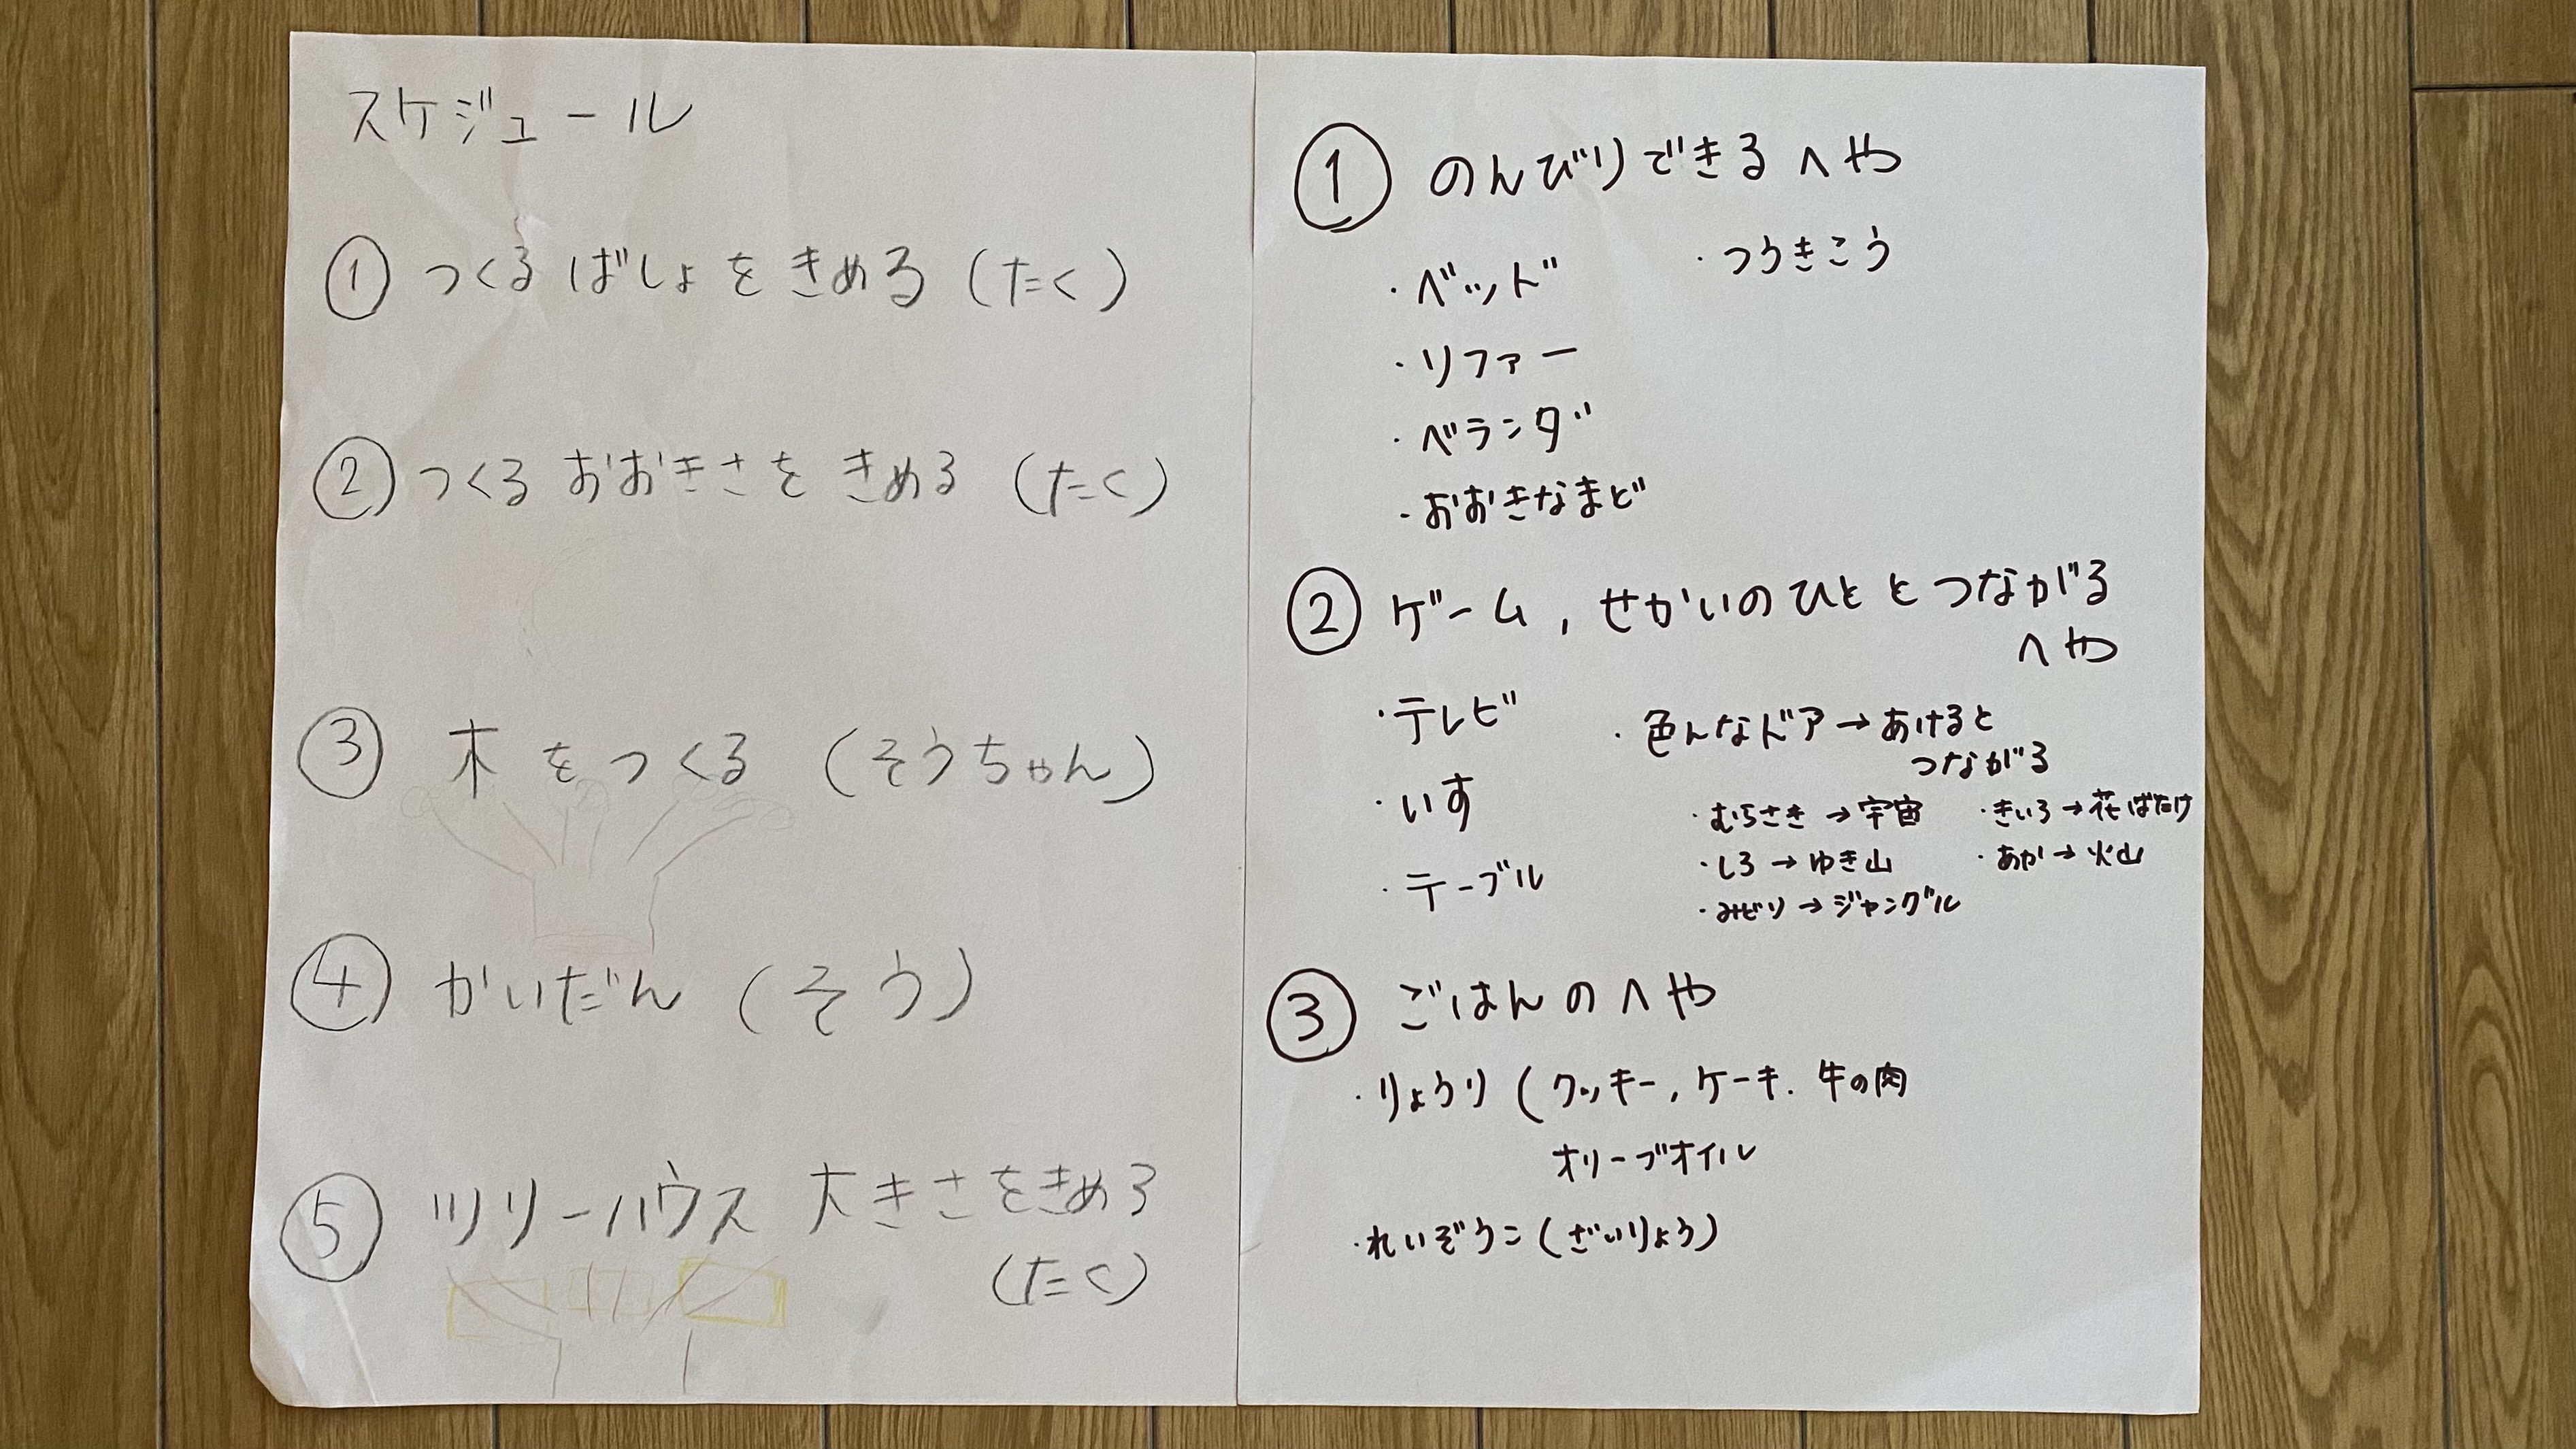 スケジュール
① つくる ばしょ を きめる (たく)
② つくる おおきさ を きめる (たく)
③ 木 を つくる (そうちゃん)
④ かいだん (そう)
⑤ ツリーハウス 大きさをきめる
(たく)
① のんびりできる へや
・ベッド
・つうきこう
・リファー
・ベランダ
・おおきなまど
② ゲーム, せかいのひと と つながる
へや
・テレビ
・色んなドア→あけると
つながる
・いす
・むらさき →宇宙
・きいろ→花ばたけ
・しろ → ゆき山
・あか→ 火山
・テーブル
・みどり → ジャングル
③ ごはん の へや
・りょうり (クッキー, ケーキ. 牛の肉
オリーブオイル
・れいぞうこ (ざいりょう)